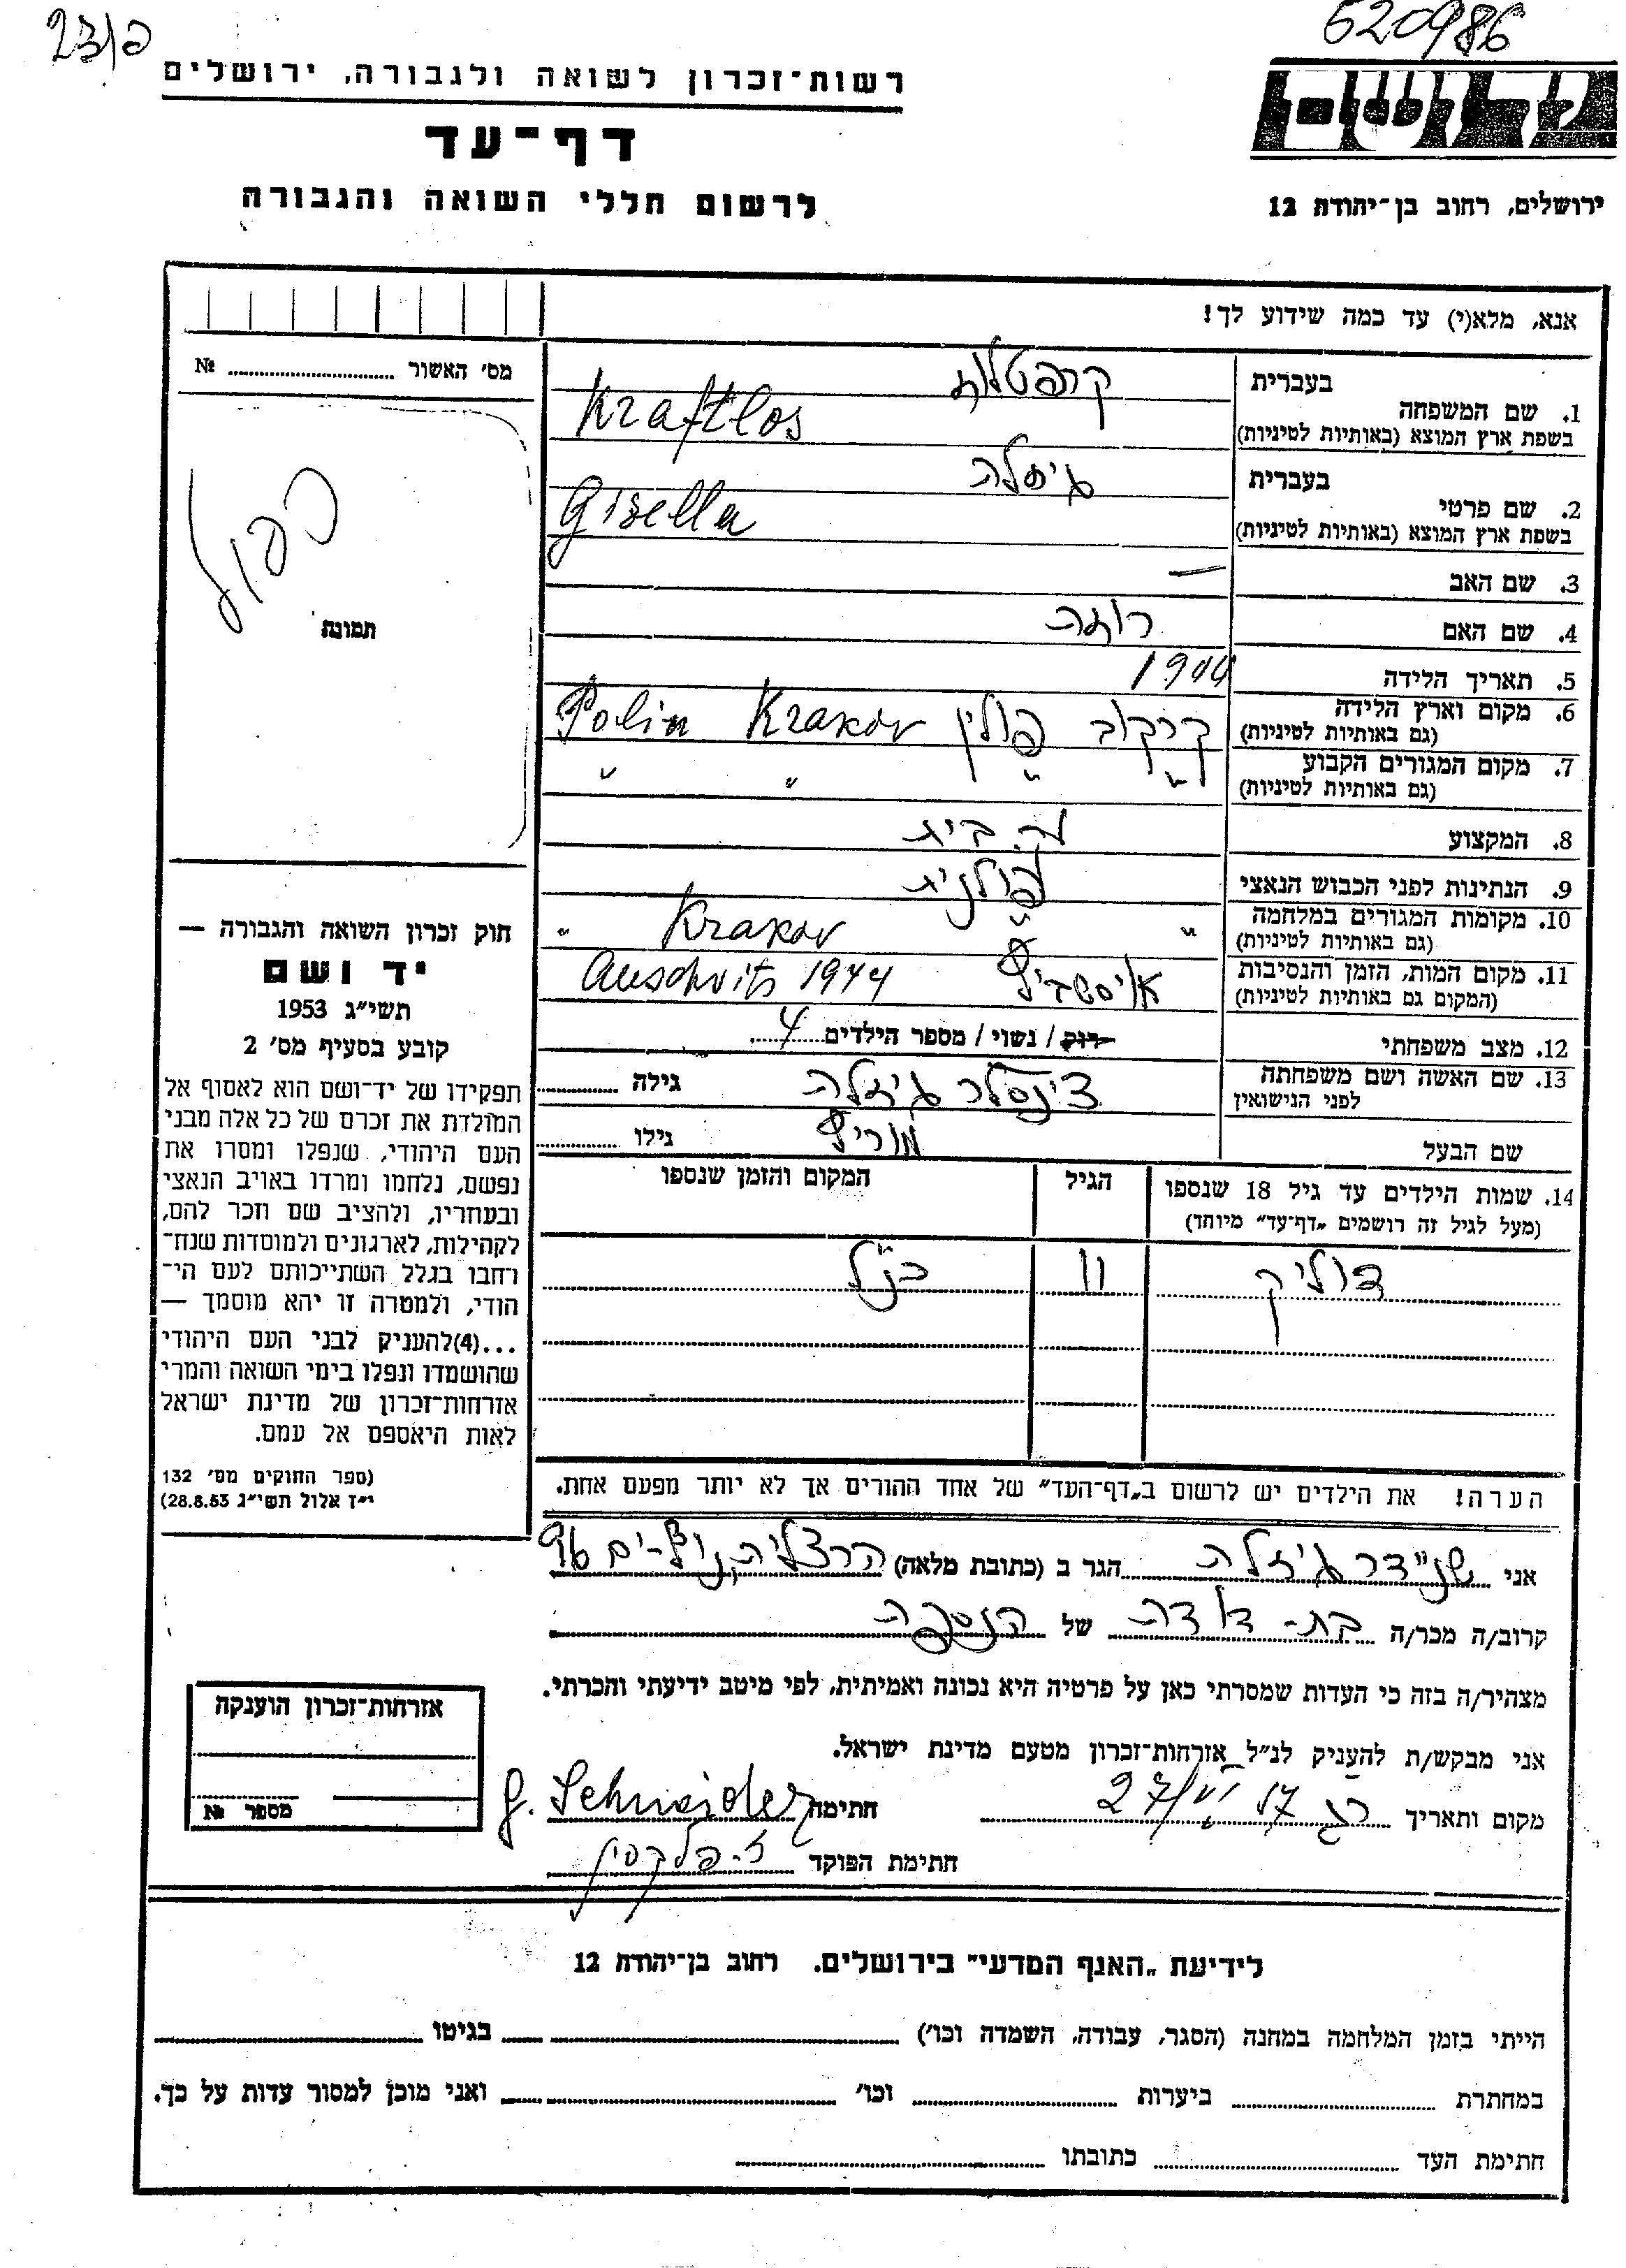 620986
רשות־זכרון לשואה ולגבורה, ירושלים
דף־עד
לרשום חללי השואה והגבורה
ירושלים, רחוב בן־יהודה 12
אנא, מלא(י) עד כמה שידוע לך!
מס' האשור № 
כפול
תמונה
בעברית
1. שם המשפחה
בשפת ארץ המוצא (באותיות לטיניות)
Kraftlos
בעברית גיזלה
2. שם פרטי
בשפת ארץ המוצא (באותיות לטיניות)
Gisella
3. שם האב —
4. שם האם
5. תאריך הלידה
6. מקום וארץ הלידה
(גם באותיות לטיניות)
קרקוב פולין Krakov Polin
7. מקום המגורים הקבוע
(גם באותיות לטיניות)
" " " "
8. המקצוע
9. הנתינות לפני הכבוש הנאצי פולנית
10. מקומות המגורים במלחמה
(גם באותיות לטיניות)
" " Krakov "
11. מקום המות, הזמן והנסיבות
(המקום גם באותיות לטיניות)
Auschvits 1944
12. מצב משפחתי
רוק / נשוי / מספר הילדים 4
13. שם האשה ושם משפחתה
לפני הנישואין
גיזלה גילה
שם הבעל מוריץ גילו
14. שמות הילדים עד גיל 18 שנספו
(מעל לגיל זה רושמים "דף־עד" מיוחד)
הגיל
המקום והזמן שנספו
11 כנ"ל
הערה! את הילדים יש לרשום ב"דף־העד" של אחד ההורים אך לא יותר מפעם אחת.
חוק זכרון השואה והגבורה —
יד ושם
תשי"ג 1953
קובע בסעיף מס' 2
תפקידו של יד־ושם הוא לאסוף אל
המולדת את זכרם של כל אלה מבני
העם היהודי, שנפלו ומסרו את
נפשם, נלחמו ומרדו באויב הנאצי
ובעוזריו, ולהציב שם וזכר להם,
לקהילות, לארגונים ולמוסדות שנח־
רחבו בגלל השתייכותם לעם הי־
הודי, ולמטרה זו יהא מוסמך —
...(4)להעניק לבני העם היהודי
שהושמדו ונפלו בימי השואה והמרי
אזרחות־זכרון של מדינת ישראל
לאות היאספם אל עמם.
(ספר החוקים מס' 132
י"ז אלול תשי"ג 28.8.53)
אני שניידר גיזלה הגר ב (כתובת מלאה) הרצליה, 96
קרוב/ה מכר/ה בת- דודה של הנספה
מצהיר/ה בזה כי העדות שמסרתי כאן על פרטיה היא נכונה ואמיתית, לפי מיטב ידיעתי והכרתי.
אני מבקש/ת להעניק לנ"ל אזרחות־זכרון מטעם מדינת ישראל.
מקום ותאריך חתימה G. Schneider
חתימת הפוקד
אזרחות־זכרון הוענקה
מספר №
לידיעת "האגף המדעי" בירושלים. רחוב בן־יהודה 12
הייתי בזמן המלחמה במחנה (הסגר, עבודה, השמדה וכו') בגיטו
במחתרת ביערות וכו' ואני מוכן למסור עדות על כך.
חתימת העד כתובתו